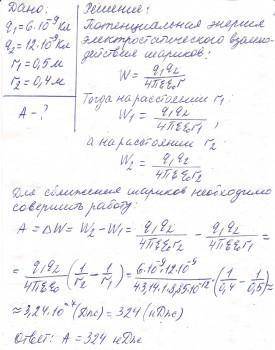 Дано:
q₁=6·10⁻⁹Кл
q₂=12·10⁻⁹Кл
r₁=0,5м
r₂=0,4м
A-?
Решение:
Потенциальная энергия
электростатического взаимо-
действия шариков:
W = q₁q₂/4πεε₀r
Тогда на расстоянии r₁:
W₁ = q₁q₂/4πεε₀r₁ ,
а на расстоянии r₂:
W₂ = q₁q₂/4πεε₀r₂
Для сближения шариков необходимо
совершить работу:
A = ΔW = W₂ - W₁ = q₁q₂/4πεε₀r₂ - q₁q₂/4πεε₀r₁ =
= q₁q₂/4πεε₀ (1/r₂ - 1/r₁) = 6·10⁻⁹·12·10⁻⁹/4·3,14·1·8,85·10⁻¹² (1/0,4 - 1/0,5) ≈
≈ 3,24·10⁻⁷ (Дж) = 324 (нДж)
Ответ: A = 324 нДж